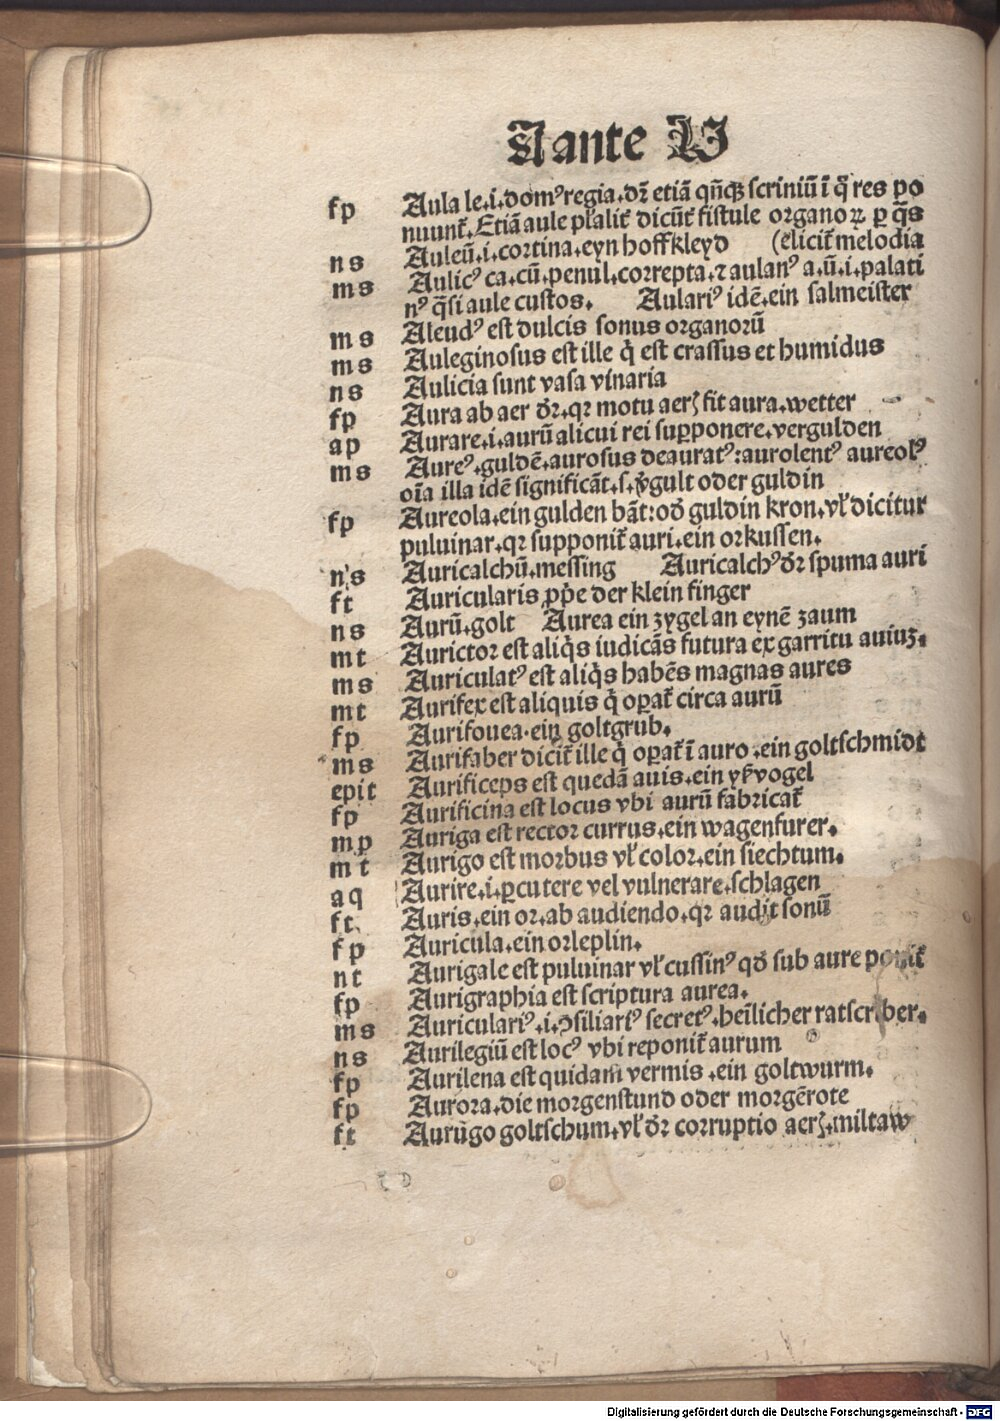 A ante U
fp Aula le.i.domꝰ regia.dr̄ etiā qn̄qꝫ scriniū ī q̄ res po
nuunt̄. Etiā aule pl̄alit̄ dicūt̄ fistule organoꝝ ꝑ q̄s
ns Auleū.i.cortina.eyn hoffkleyd (elicit̄ melodia
ms Aulicꝰ ca.cū.penul.correpta.⁊ aulanꝰ a.ū.i.palati
nꝰ q̄si aule custos. Aulariꝰ idē.ein salmeister
ms Aleudꝰ est dulcis sonus organorū
ms Auleginosus est ille q̇ est crassus et humidus
ns Aulicia sunt vasa vinaria
fp Aura ab aer dr̄.qꝛ motu aerꝭ fit aura.wetter
ap Aurare.i.aurū alicui rei suꝑponere.vergulden
ms Aureꝰ.guldē.aurosus deauratꝰ:aurolentꝰ aureolꝰ
oīa illa idē significāt.s.v̄gult oder guldin
fp Aureola.ein gulden bāt:od̄ guldin kron.vl̄ dicitur
puluinar.qꝛ supponit̄ auri.ein orkussen.
ns Auricalchū.messing Auricalchꝰ dr̄ spuma auri
ft Auricularis ꝓp̄e der klein finger
ns Aurū.golt Aurea ein zygel an eynē zaum
mt Aurictor est aliq̇s iudicās futura ex garritu auiuꝫ.
ms Auriculatꝰ est aliq̇s habēs magnas aures
mt Aurifex est aliquis q̇ oꝑat̄ circa aurū
fp Aurifouea.ein goltgrub.
ms Aurifaber dicit̄ ille q̇ oꝑat̄ ī auro.ein goltschmidt
epit Aurificeps est quedā auis.ein yßvogel
fp Aurificina est locus vbi aurū fabricat̄
mp Auriga est rector currus.ein wagenfurer.
mt Aurigo est morbus vl̄ color.ein siechtum.
aq Aurire.i.ꝑcutere vel vulnerare.schlagen
ft Auris.ein or.ab audiendo.qꝛ audit sonū
fp Auricula.ein orleplin.
nt Aurigale est puluinar vl̄ cussinꝰ qd̄ sub aure ponit̄
fp Aurigraphia est scriptura aurea.
ms Auriculariꝰ.i.ꝯsiliariꝰ secretꝰ.heīlicher ratscriber.
ns Aurilegiū est locꝰ vbi reponit̄ aurum
fp Aurilena est quidam vermis.ein goltwurm.
fp Aurora.die morgenstund oder morgērote
ft Aurūgo goltschum.vl̄ dr̄ corruptio aerꝭ.miltaw
Digitalisierung gefördert durch die Deutsche Forschungsgemeinschaft - DFG